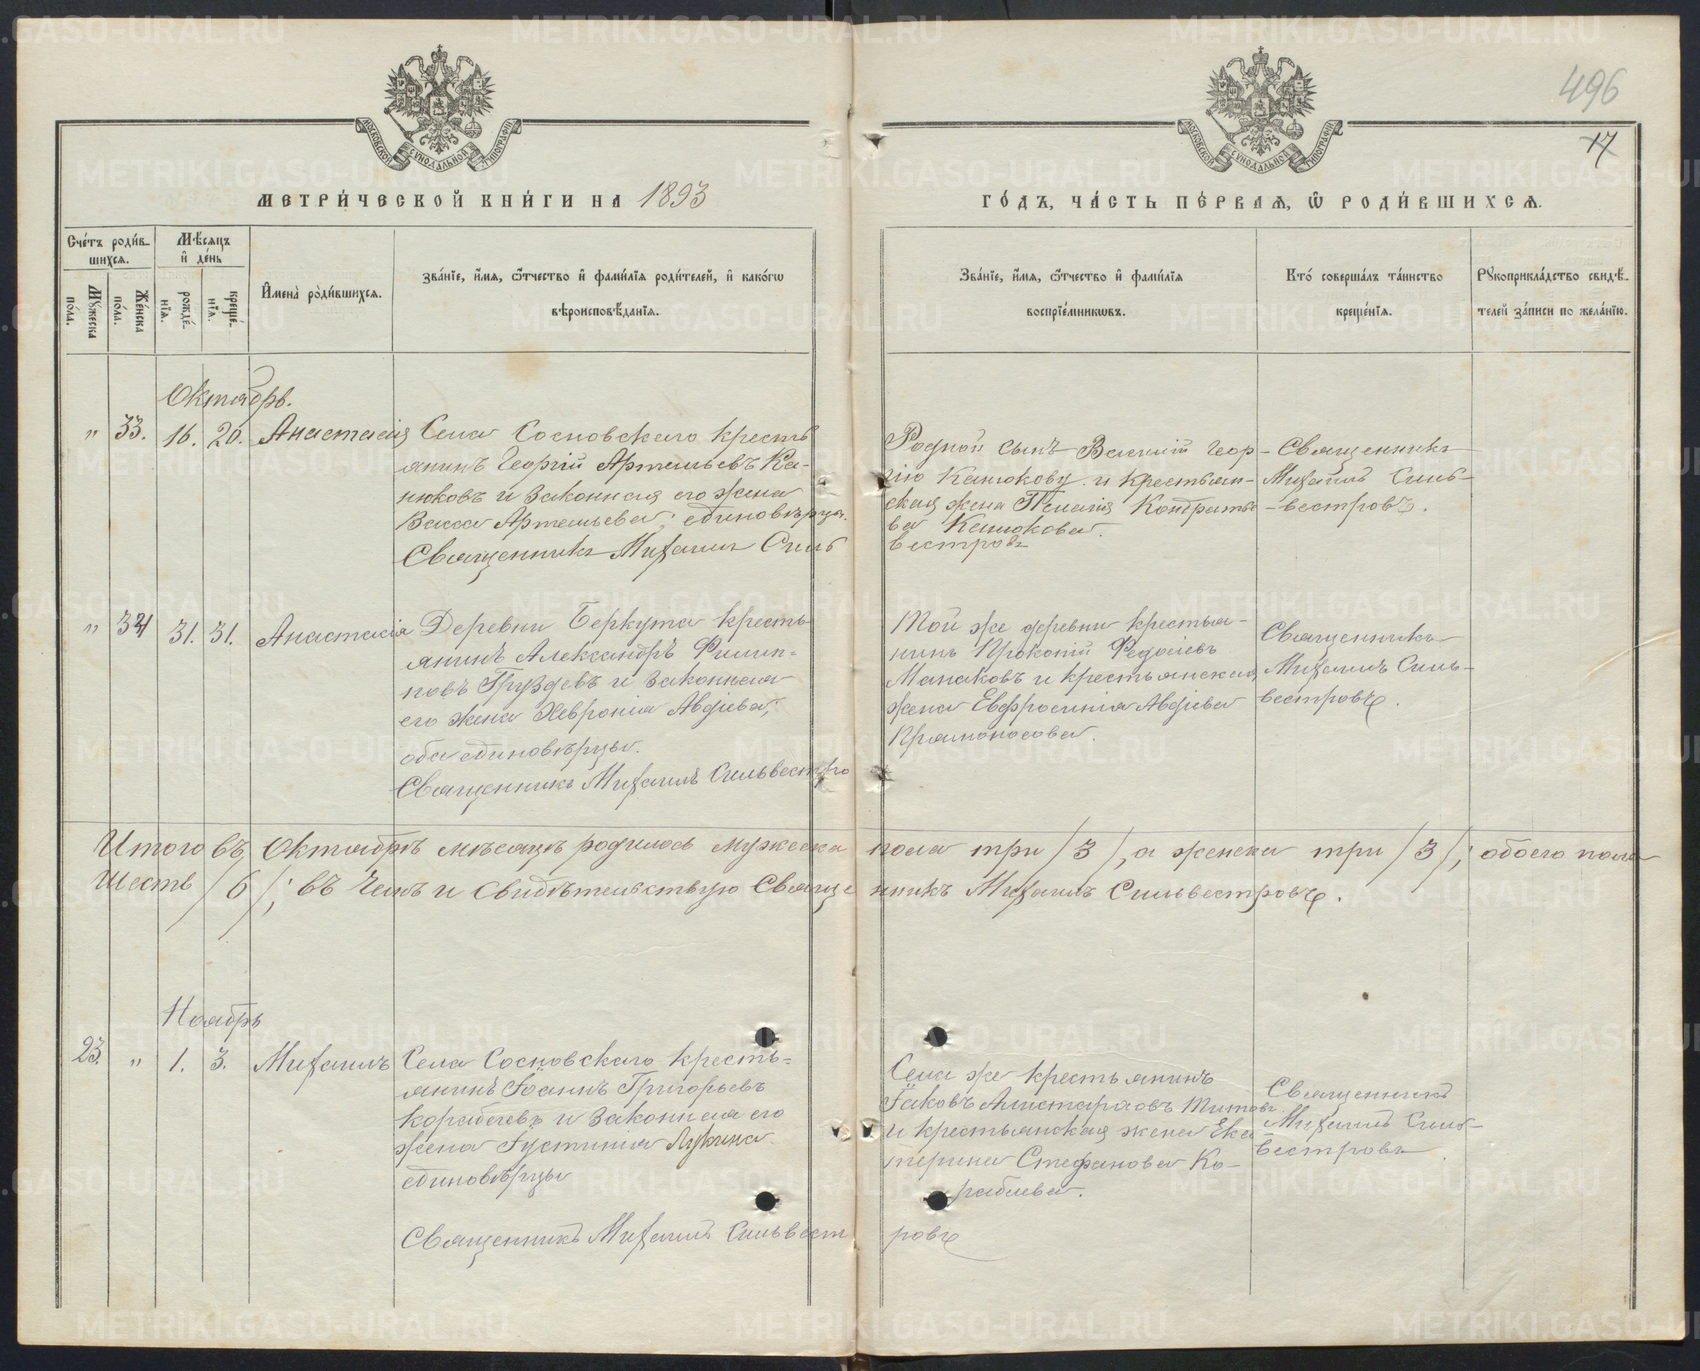 496
17
МОСКОВСКОЙ СУНОДАЛЬНОЙ ТИПОГРАФІИ
МОСКОВСКОЙ СУНОДАЛЬНОЙ ТИПОГРАФІИ
МЕТРИ́ЧЕСКОЙ КНИ́ГИ НА 1893
ГО́ДЪ, ЧА́СТЬ ПЕ́РВАѦ, Ѡ҆ РОДИ́ВШИХСѦ.
Сче́тъ роди́в-
шихсѧ.
Мꙋ́жеска по́ла.
Же́нска по́ла.
Мѣ́сѧцъ
и҆ де́нь
рожде́нїѧ.
креще́нїѧ.
И҆мена̀ роди́вшихсѧ.
Зва́нїе, и҆́мѧ, ѻ҆́тчество и҆ фами́лїѧ роди́телей, и҆ како́гѡ
вѣроисповѣ́данїѧ.
Зва́нїе, и҆́мѧ, ѻ҆́тчество и҆ фами́лїѧ
воспрїе́мникѡвъ.
Кто̀ соверша́лъ та́инство
креще́нїѧ.
Рꙋкоприкла́дство свидѣ́-
телей за́писи по жела́нїю.
Октябрь.
" 33. 16. 20. Анастасія
Села Сосновскаго кресть
янинъ Георгій Артемьевъ Ка-
нюковъ и законная его жена
Васса Артемьева; единовѣрцы.
Священникъ Михаилъ Силь
Родной сынъ Василій Геор-
гію Канюкову и крестьян-
ская жена Пелагія Кондратье
ва Канюкова.
вестровъ
Священникъ
Михаилъ Силь-
вестровъ.
" 34 31. 31. Анастасія
Деревни Беркута кресть
янинъ Александръ Филип-
повъ Груздевъ и законная
его жена Хевронія Авдіева;
оба единовѣрцы.
Священникъ Михаилъ Сильвестро
Той же деревни крестья-
нинъ Прокопій
Манаковъ и крестьянская
жена Евфросинія Авдіева
Прямоносова.
Священникъ
Михаилъ Силь-
вестровъ.
Итого въ Октябрѣ мѣсяцѣ родилось мужеска пола три /3/, а женска три /3/; обоего пола
шесть /6/; въ чемъ и свидѣтельствую Священникъ Михаилъ Сильвестровъ.
Ноябрь
23. " 1. 3. Михаилъ
Села Сосновскаго кресть-
янинъ Іоаннъ Григорьевъ
Корабаевъ и законная его
жена Іустинія Лукина
единовѣрцы
Священникъ Михаилъ Сильвест
Села же крестьянинъ
Іаковъ Аристарховъ Титовъ
и крестьянская жена Ека
терина Стефанова Ко-
рабаева.
ровъ
Священникъ
Михаилъ Силь-
вестровъ.
METRIKI.GASO-URAL.RU